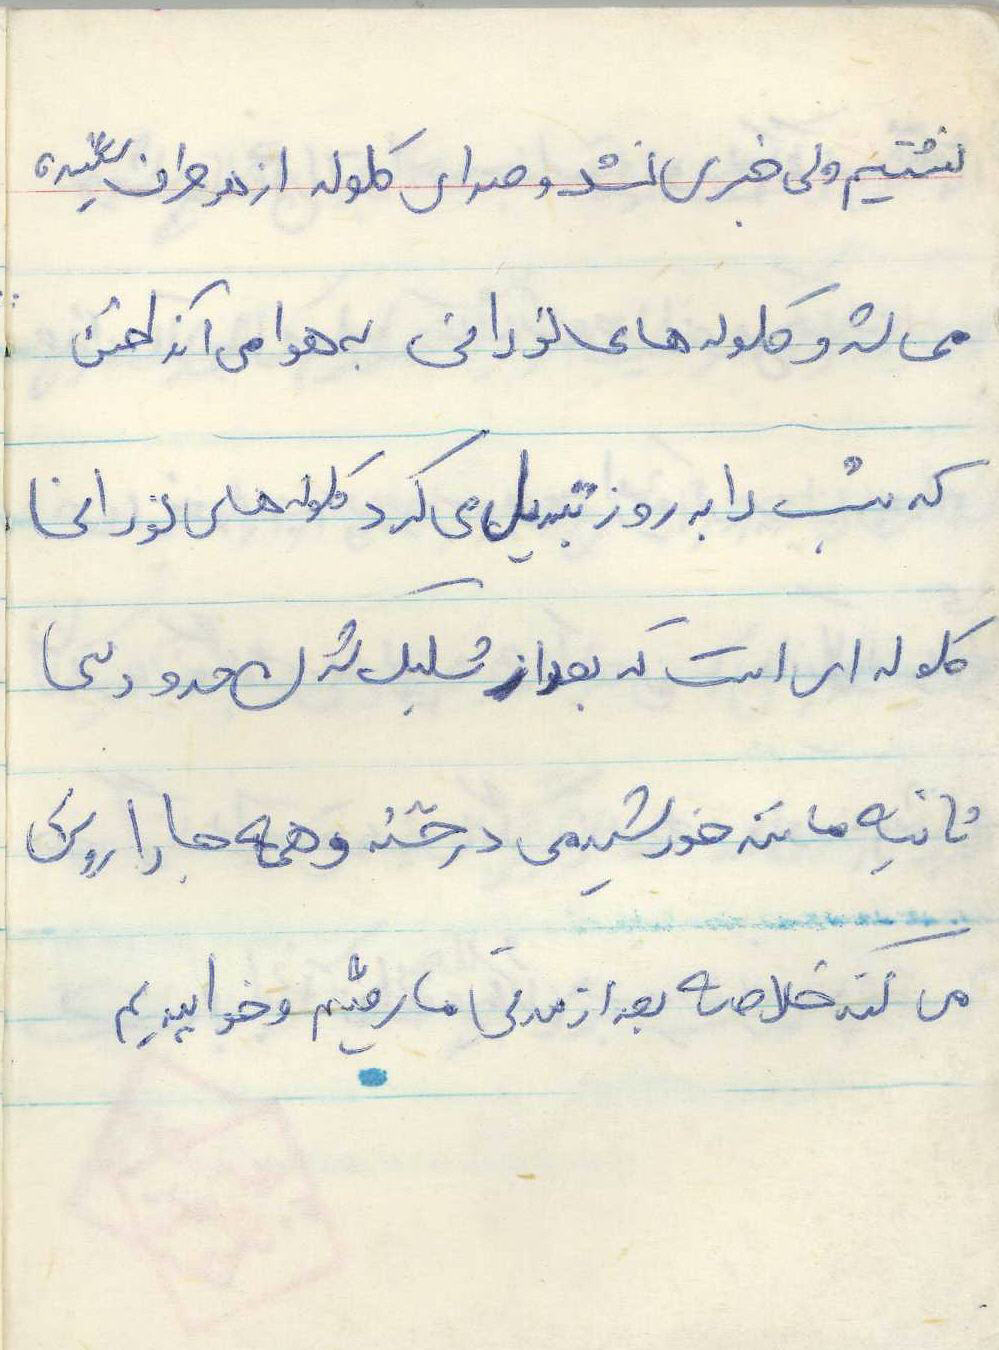 نشتیم ولی خبری نشد و صدای گلوله از هر طرف شنیده
می شد و گلوله های نورانی به هوا می انداختن
که شب را به روز تبدیل می کرد گلوله های نورانی
گلوله ای است که بعد از شلیک شدن حدود سی
ثانیه مانند خورشید می درخشد و همه جا را روشن
می کند خلاصه بعد از مدتی ما رفتیم و خوابیدیم